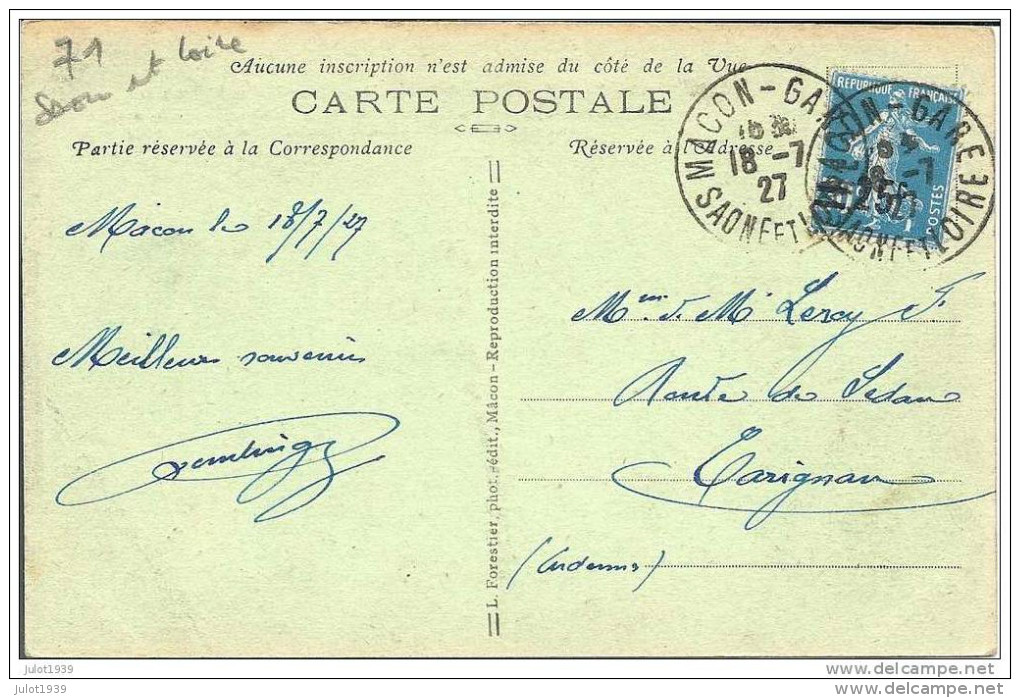 71
Saone et Loire
Aucune inscription n'est admise du côté de la Vue
CARTE POSTALE
Partie réservée à la Correspondance
Réservée à l'Adresse
MACON-GARE
18-7
27
SAONE ET LOIRE
MACON-GARE
-7
SAONE ET LOIRE
REPUBLIQUE FRANÇAISE
25c
POSTES
Macon le 18/7/27
Meilleurs souvenirs
Mme & Mr Leroy F
Route de Sedan
Carignan
(Ardennes)
L. Forestier, phot.-édit., Mâcon - Reproduction interdite
julot1939
julot1939
www.delcampe.net
www.delcampe.net